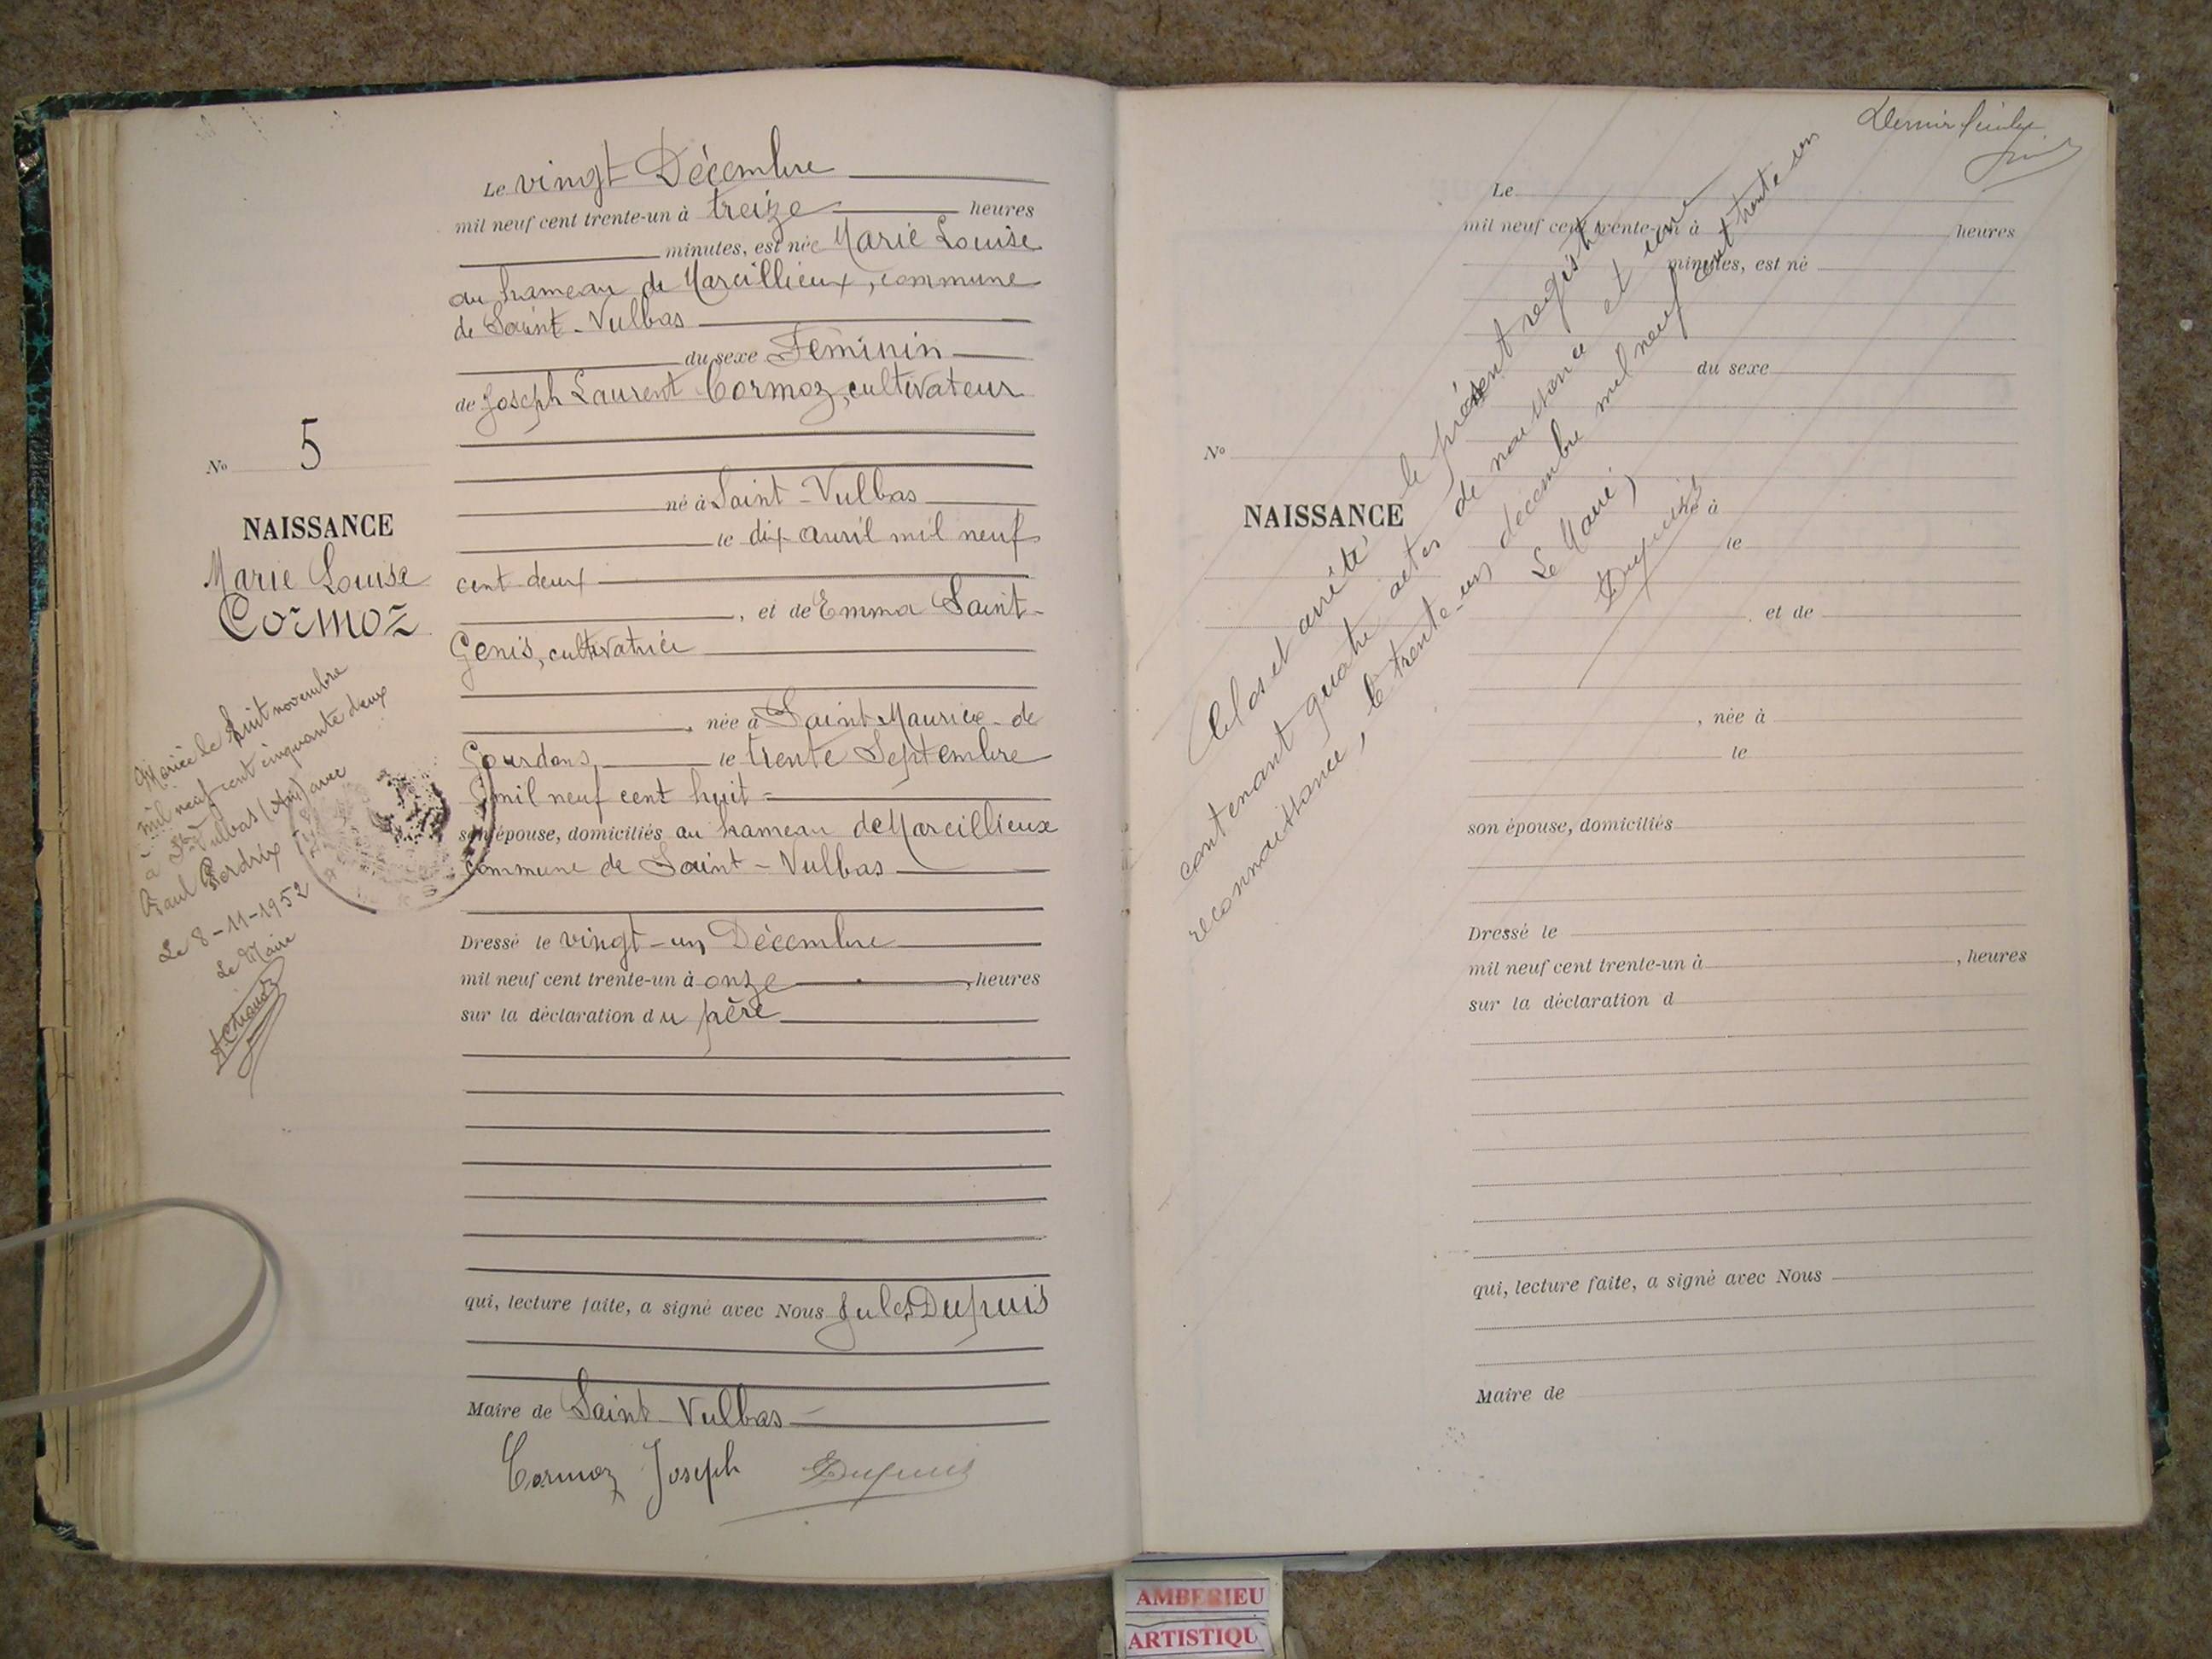 Le vingt Décembre
mil neuf cent trente-un à treize heures
minutes, est née Marie Louise
au hameau de Marcillieux, commune
de Saint-Vulbas
du sexe Féminin
de Joseph Laurent Cormoz, cultivateur
né à Saint-Vulbas
le dix avril mil neuf
cent deux
, et de Emma Saint-
Genis, cultivatrice
, née à Saint Maurice-de
Gourdans, le trente Septembre
mil neuf cent huit
son épouse, domiciliés au hameau de Marcillieux
commune de Saint-Vulbas
Dressé le vingt-un Décembre
mil neuf cent trente-un à onze, heures
sur la déclaration du père
qui, lecture faite, a signé avec Nous Jules Dupuis
Maire de Saint-Vulbas
Cormoz Joseph Dupuis
No 5
NAISSANCE
Marie Louise
Cormoz
Mariée le huit novembre
mil neuf cent cinquante deux
à St Vulbas (Ain) avec
Paul Perdrix
Le 8-11-1952
Le Maire
Dernier
Le
mil neuf cent trente-un à heures
minutes, est né
du sexe
No
NAISSANCE
né à
le
et de
, née à
le
son épouse, domiciliés
Dressé le
mil neuf cent trente-un à, heures
sur la déclaration d
qui, lecture faite, a signé avec Nous
Maire de
Clos et arrêté le présent registre
contenant quatre actes de naissance et une
reconnaissance, le trente-un décembre mil neuf cent trente un
Le Maire,
Dupuis
AMBERIEU
ARTISTIQU